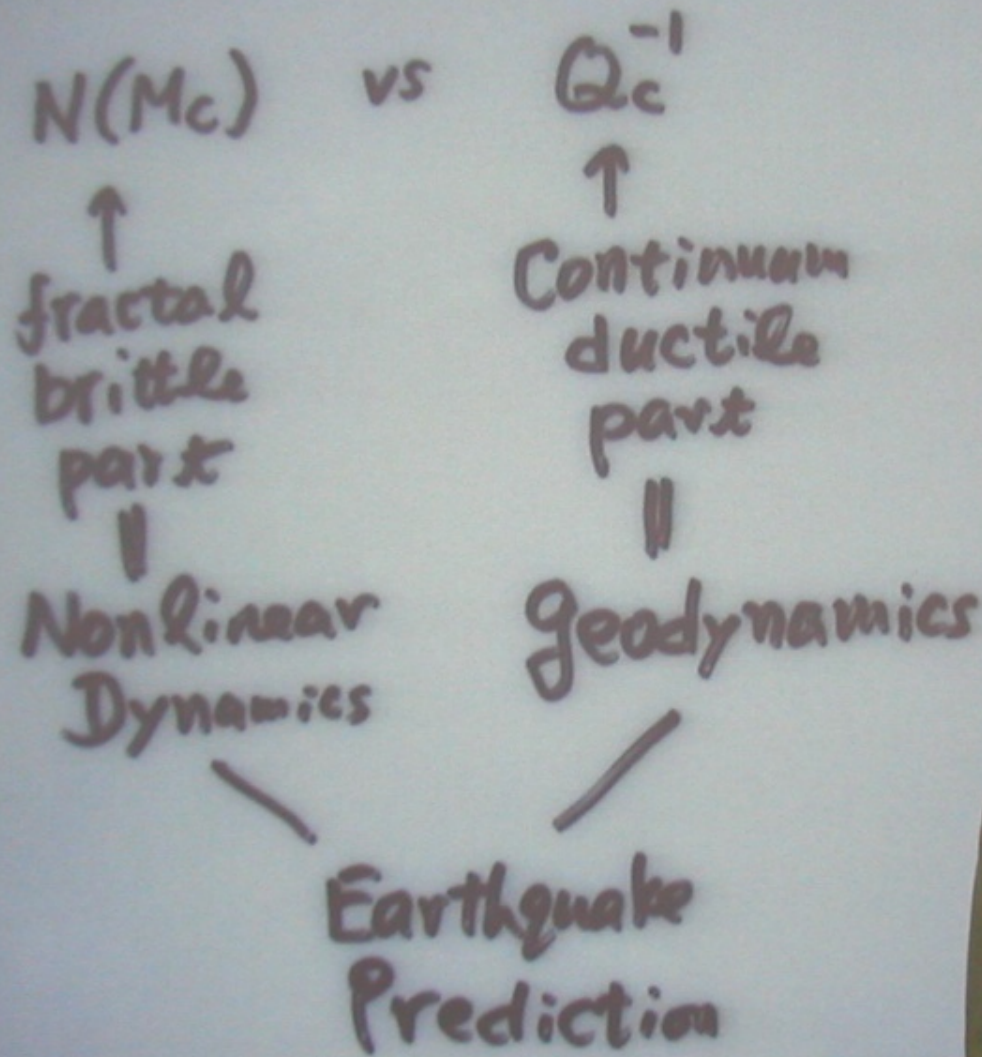 N(Mc) vs Qc⁻¹
↑ ↑
fractal
brittle
part
||
Nonlinear
Dynamics
Continuum
ductile
part
||
geodynamics
Earthquake
Prediction